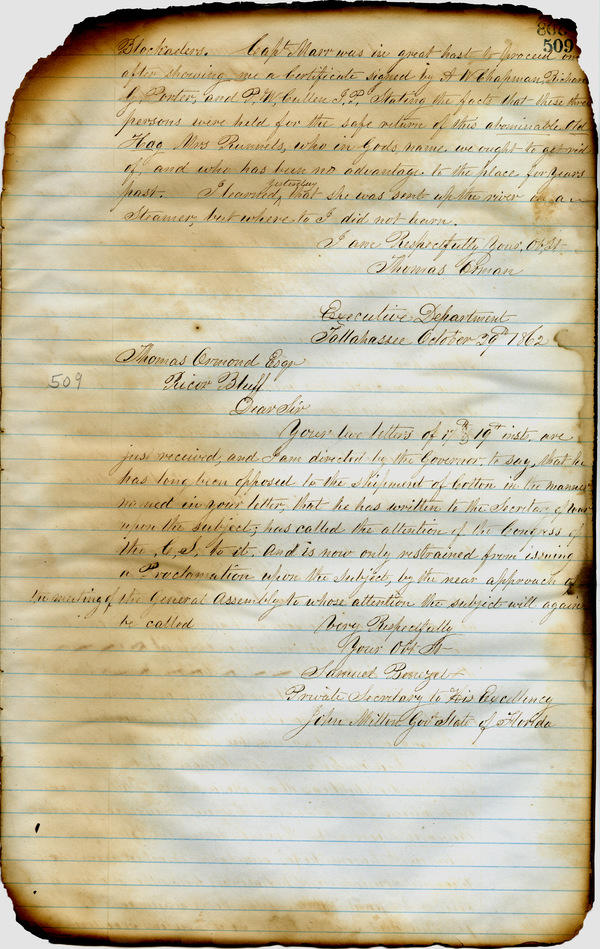 509
Blockaders. Capt Marr was in great hast to proceed on
after showing me a Certificate signed by A W Chapman, Richard
G, Porter, and P, W, Cullen J, P, Stating the facts that these three
persons were held for the safe return of this abominable Old
Hag Mrs Runnels, who in Gods name we ought to get rid
of, and who has been no advantage to the place for years
past. I learned, yesterday that she was sent up the river on a
Steamer, but where to I did not learn.
I am Respectfully Your, Ob, St
Thomas Orman
Executive Department
Tallahassee October 29th 1862
Thomas Ormond Esqr
509
Ricor Bluff
Dear Sir
Your two letters of 17th & 19th inst, are
just received, and I am directed by the Governor, to say, that he
has long been opposed to the shipment of Cotton in the manner
named in your letter, that he has written to the Secretary of War
upon the subject, has called the attention of the Congress of
the C, S, to it, and is now only restrained from issuing
a Proclamation upon the subject, by the near approach of
the meeting of the General Assembly to whose attention the subject will again
be called
Very Respectfully
Your Obt St
Samuel Benezet
Private Secretary to His Excellency
John Milton Govr State of Florida